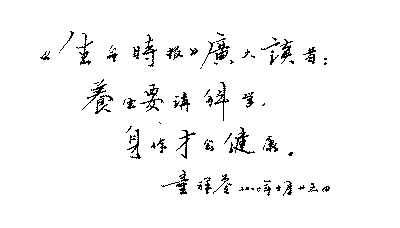 《生命時報》廣大讀者：
養生要講科學，
身體才會健康。
童祥苓二〇〇〇年十月廿五日